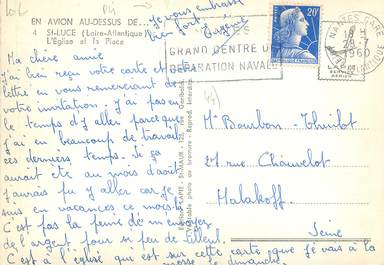 EN AVION AU-DESSUS DE...
4 St-LUCE (Loire-Atlantique)
L'Église et la Place
Je vous embrasse
bien fort.
Eugène
Ma chère amie
J'ai bien reçu votre carte et
lettre en vous remerciant de
votre invitation. J'ai pas eu
le temps d'y aller parce que
j'ai eu beaucoup de travail
ces derniers temps. Si ça
aurait été au mois d'août
j'aurais pu y aller car je
suis en vacances ce mois-là
C'est pas la peine de m'envoyer
de l'argent, pour si peu de tilleul
C'est à l'église qui est sur cette carte que je vais à la
messe le dimanche.
GRAND CENTRE DE
RÉPARATION NAVALE
20F
NANTES GARE
18
28-7
1960
Mme Bourbon Thuilot
21 rue Chauvelot
Malakoff
Seine